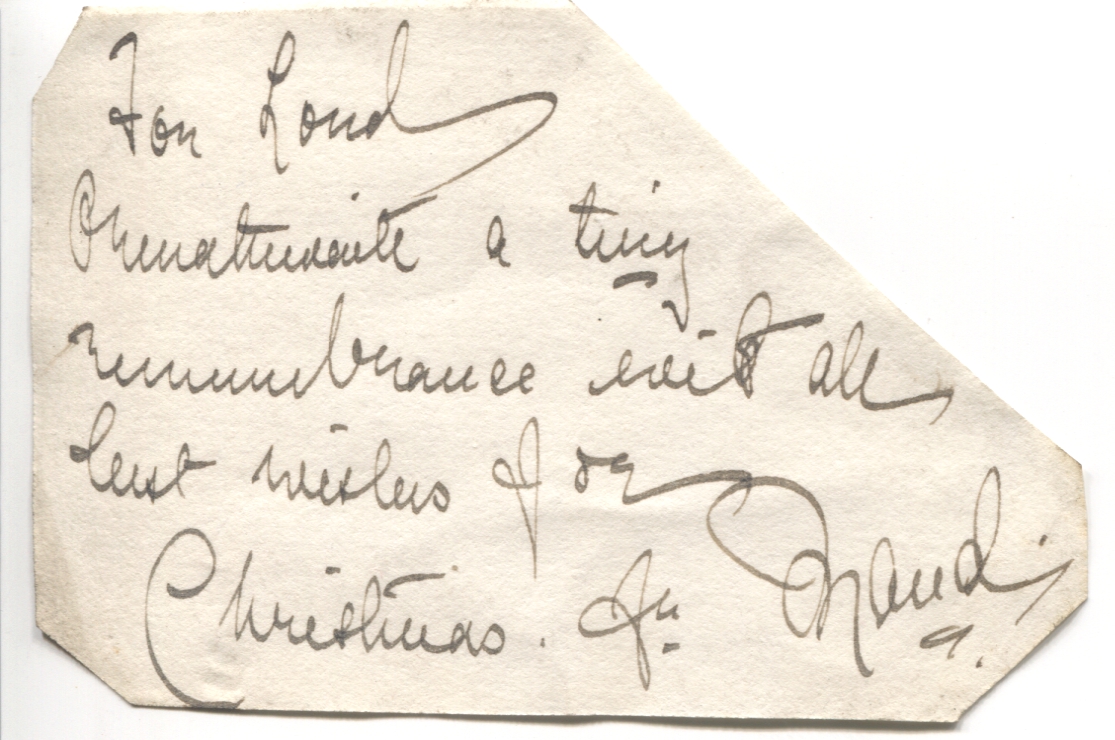 For Lord
Ormathwaite a tiny
remembrance with all
best wishes for
Christmas. fr: Maud.